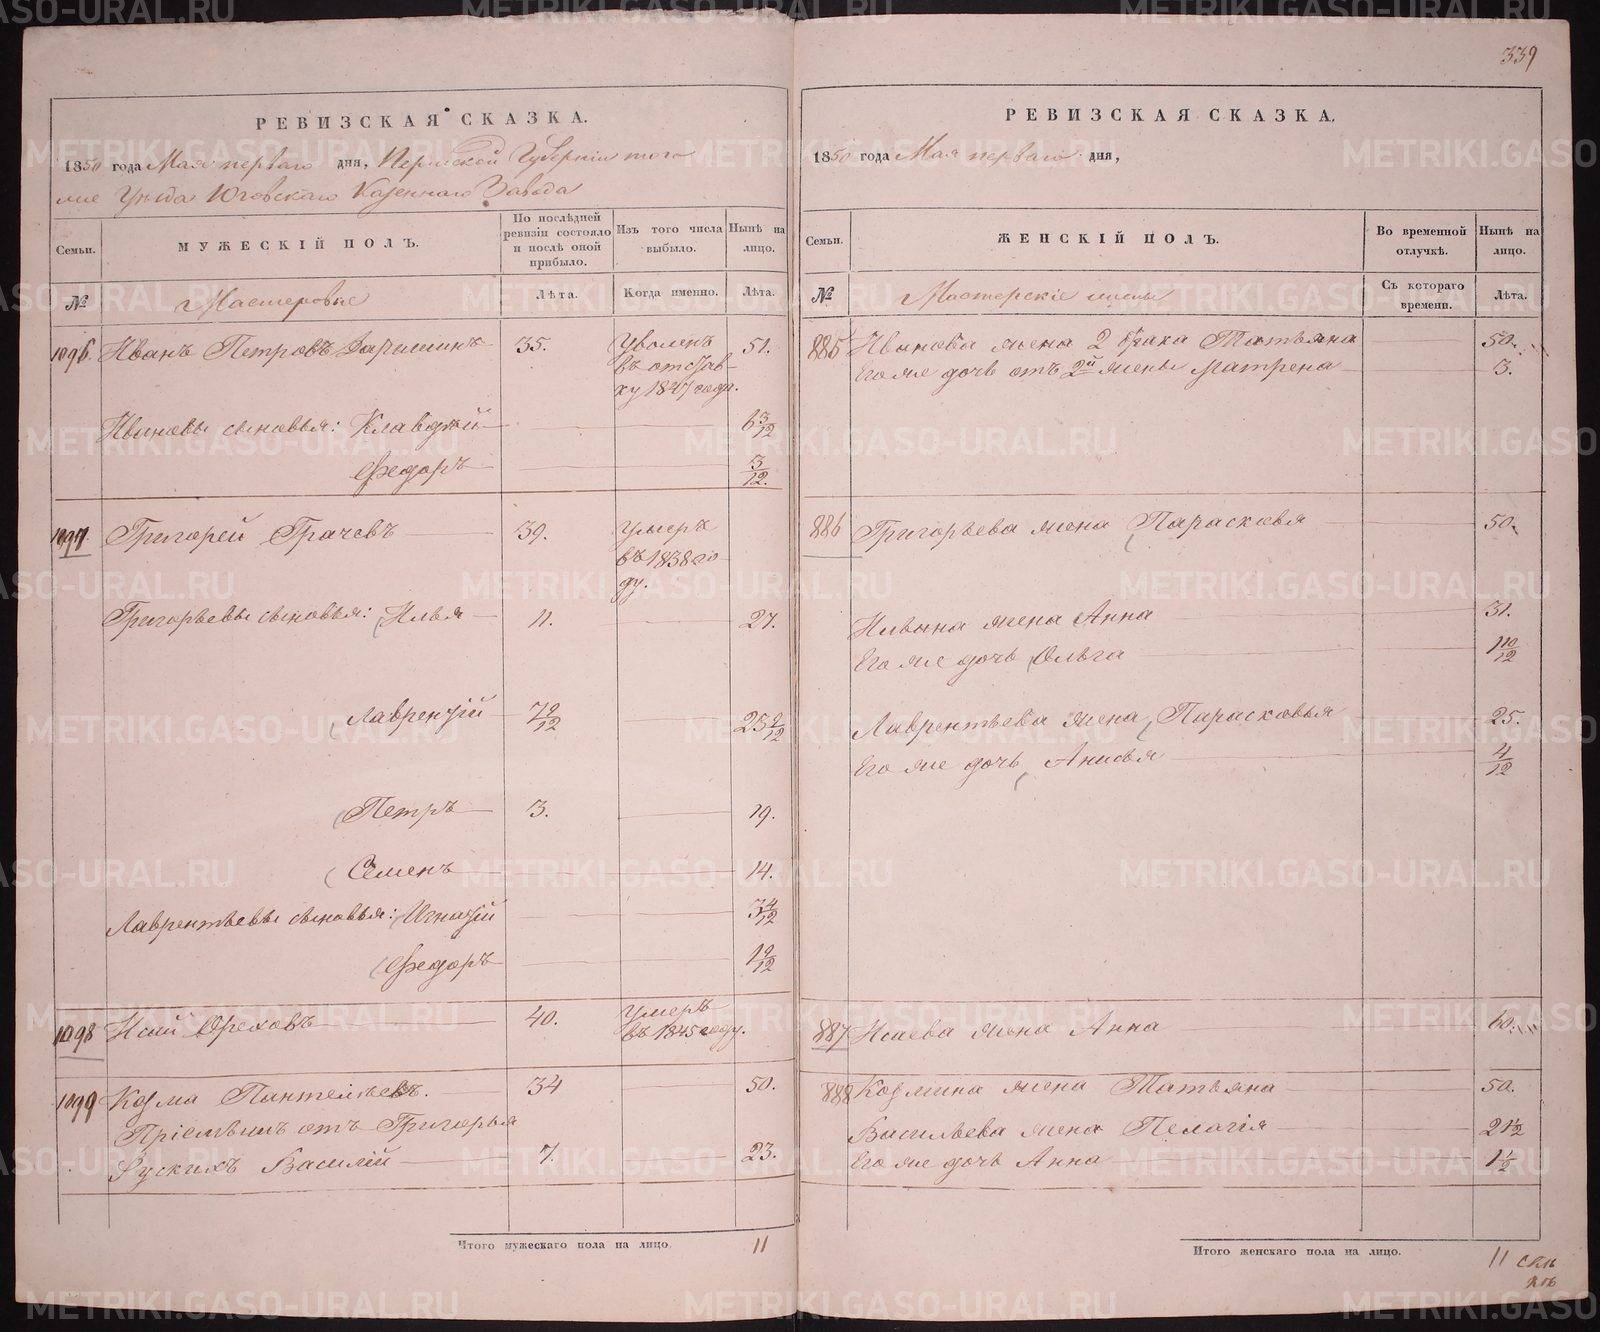 339
РЕВИЗСКАЯ СКАЗКА.
1850 года Мая перваго дня, Пермской Губерніи того
же Уѣзда Юговскаго Казеннаго Завода
Семьи.
МУЖЕСКІЙ ПОЛЪ.
По послѣдней ревизіи состояло и послѣ оной прибыло.
Изъ того числа выбыло.
Нынѣ на лицо.
№
Мастеровые
Лѣта.
Когда именно.
Лѣта.
1096. Иванъ Петровъ 35. Уволенъ 51.
въ отстав-
ку 1847 года.
Ивановы сыновья: Клавдій 6 3/12
Федоръ 3/12.
1097 Григорей Грачевъ 39. Умеръ
въ 1838 го
ду.
Григорьевы сыновья: Илья 11. 27.
Лаврентій 7 9/12 23 9/12
Петръ 3. 19.
Семенъ 14.
Лаврентьевы сыновья: Игнатій 3 4/12
Федоръ 1 9/12
1098 Исай Ореховъ 40. Умеръ
въ 1845 году.
1099 Козма Пантелѣевъ. 34 50.
Пріемышъ отъ Григорья
Рускихъ Василій 7. 23.
Итого мужескаго пола на лицо. 11
РЕВИЗСКАЯ СКАЗКА.
1850 года Мая перваго дня,
Семьи.
ЖЕНСКІЙ ПОЛЪ.
Во временной отлучкѣ.
Нынѣ на лицо.
№
Мастерскіе жены
Съ котораго времени.
Лѣта.
885 Иванова жена 2 брака Татьяна 50.
Его же дочь отъ 2й жены Матрена 3.
886 Григорьева жена Парасковья 50.
Ильина жена Анна 31.
Его же дочь Ольга 1 10/12
Лаврентьева жена Парасковья 25.
Его же дочь Анисья 4/12
887 Исаева жена Анна 60.
888 Козмина жена Татьяна 50.
Васильева жена Пелагія 21 1/2
Его же дочь Анна 1 1/2
Итого женскаго пола на лицо. 11
METRIKI.GASO-URAL.RU